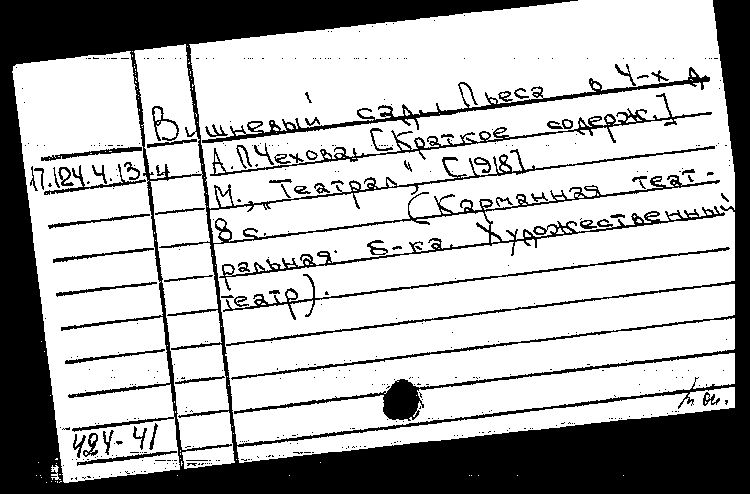 Вишневый сад. Пьеса в 4-х д.
17.124.4.13-4 А.П.Чехова. [Краткое содерж.]
М., "Театрал", [1918].
8 с. (Карманная теат-
ральная б-ка. Художественный
театр).
424-41